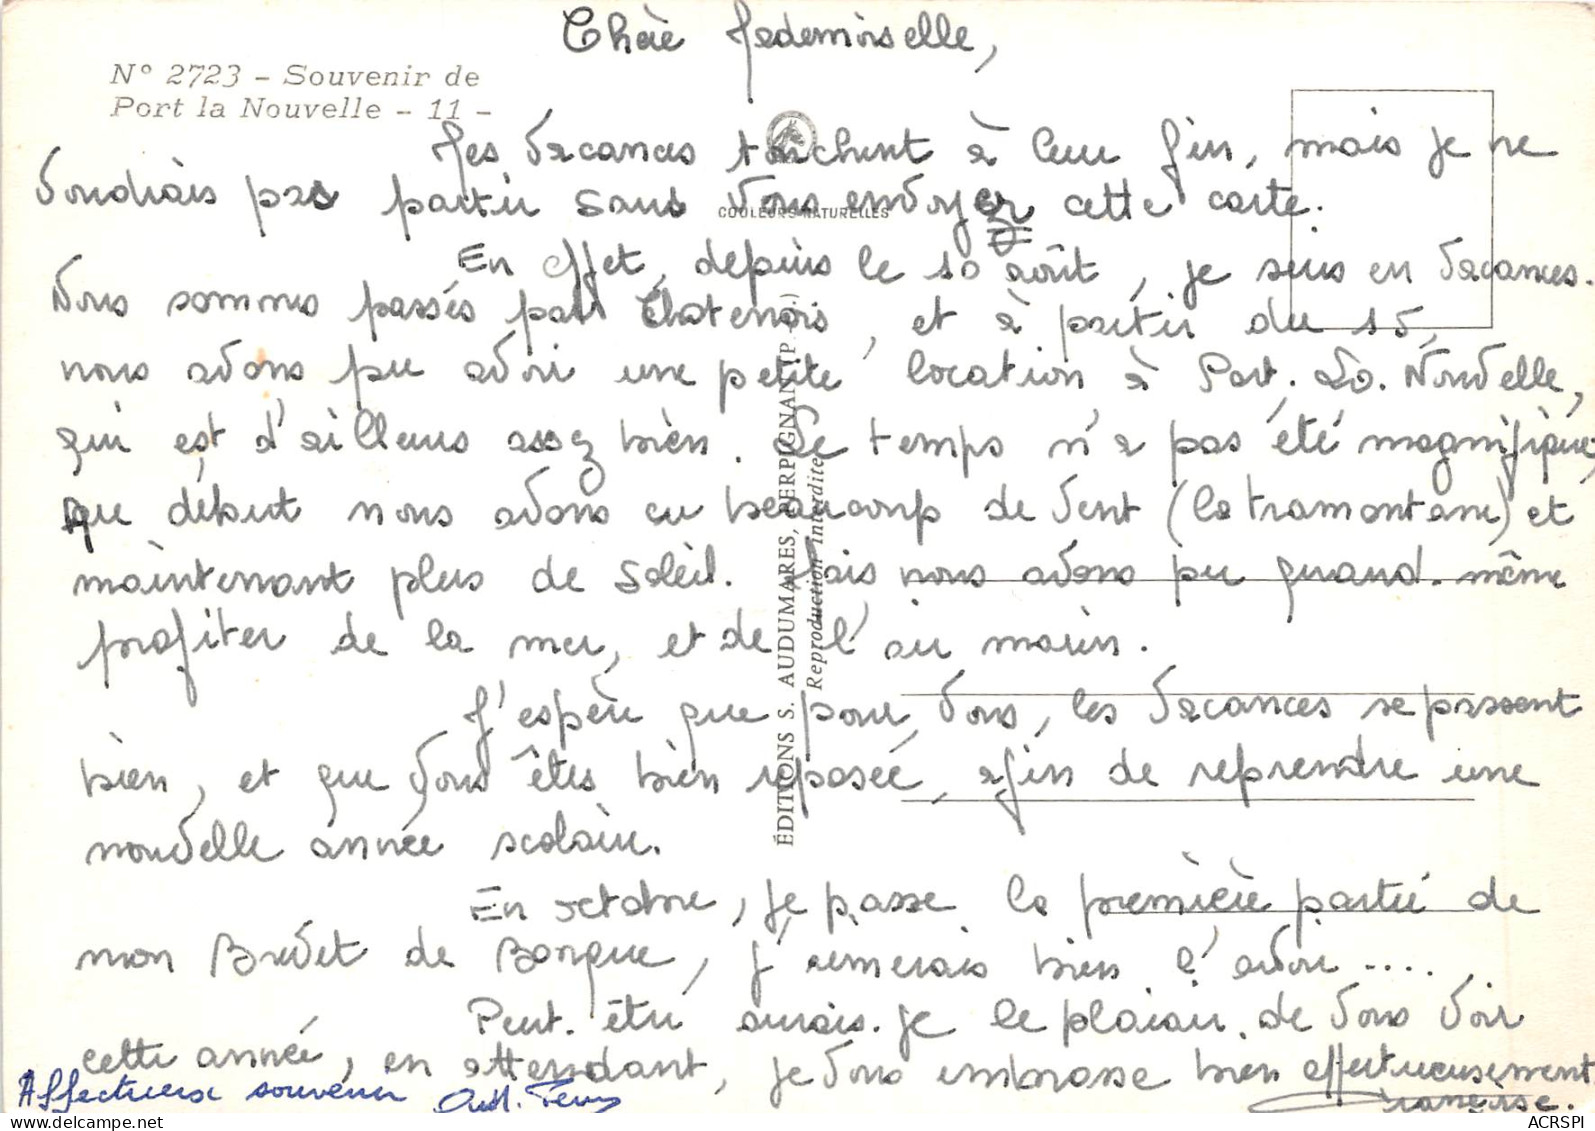 Chère Mademoiselle,
N° 2723 - Souvenir de
Port la Nouvelle - 11 -
Mes vacances touchent à leur fin, mais je ne
voudrais pas partir sans vous envoyer cette carte.
COULEURS NATURELLES
En effet, depuis le 10 août, je suis en vacances.
Nous sommes passés par Chatenois, et à partir du 15,
nous avons pu avoir une petite location à Port. La. Nouvelle,
qui est d'ailleurs assez bien. Le temps n'a pas été magnifique,
au début nous avons eu beaucoup de vent (la tramontane) et
maintenant plus de soleil. Mais nous avons pu quand-même
profiter de la mer, et de l'air marin.
J'espère que pour vous, les vacances se passent
bien, et que vous êtes bien reposée, afin de reprendre une
nouvelle année scolaire.
En octobre, je passe la première partie de
mon Brevet de Banque, j'aimerais bien l'avoir.....
Peut-être aurais-je le plaisir de vous voir
cette année, en attendant, je vous embrasse bien affectueusement
Françoise.
Affectueux souvenir
ÉDITIONS S. AUDUMARES, PERPIGNAN (P.-O.)
Reproduction interdite
ACRSPI